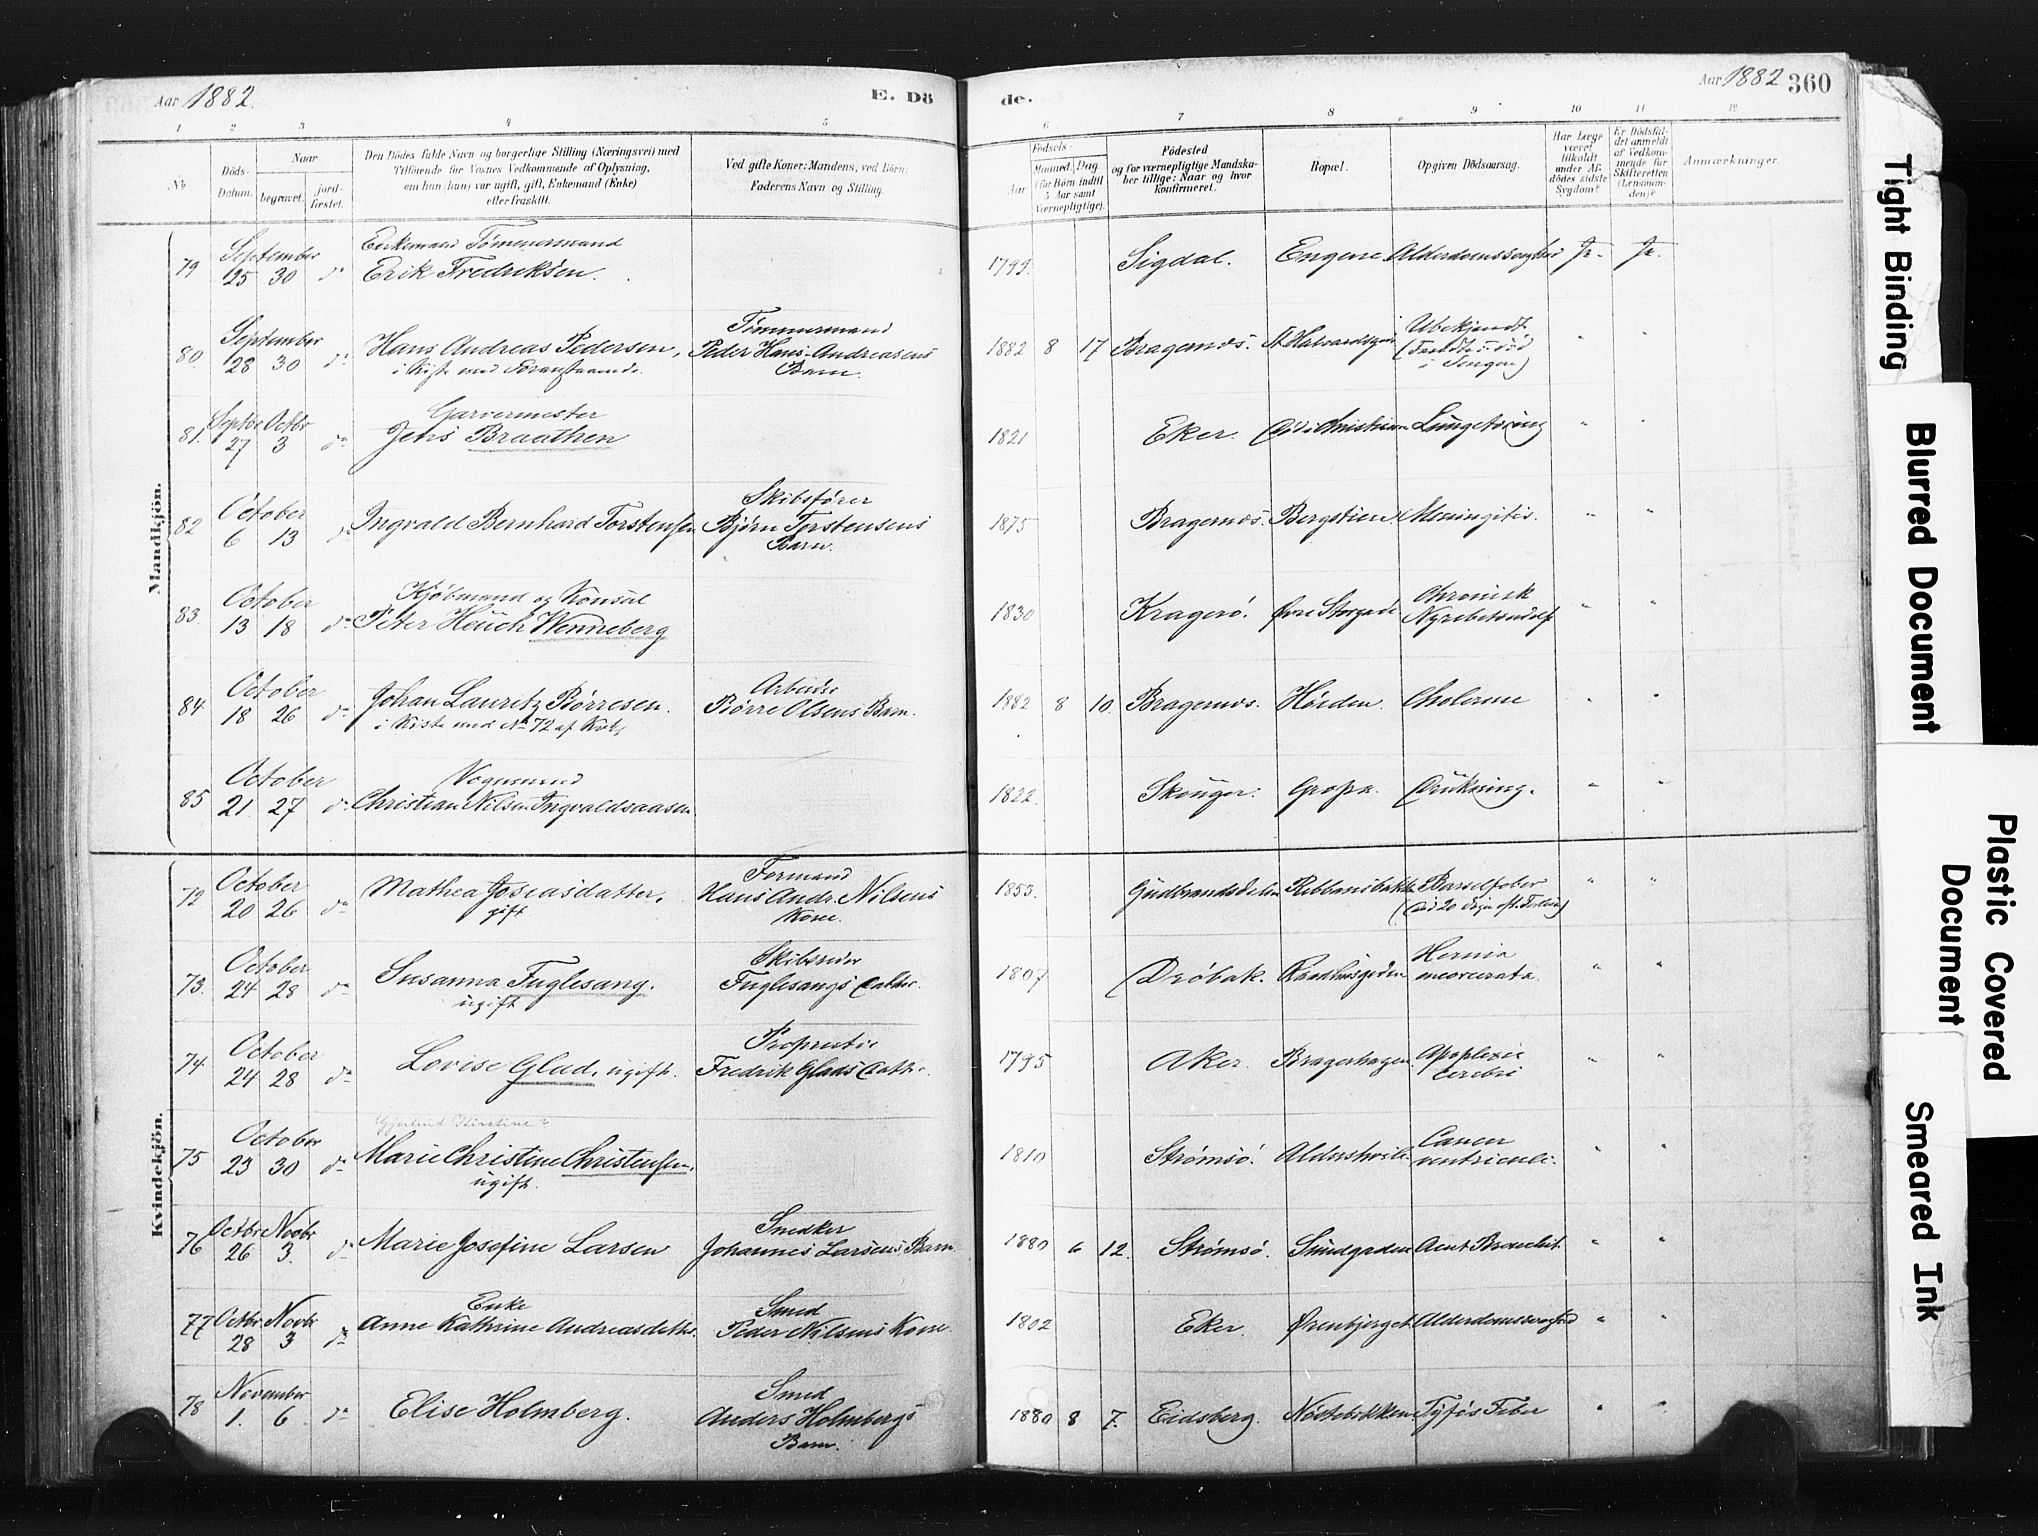 Aar 1882. E. Dö
de. Aar 1882 360
1 2 3 4 5
6 7 8 9 10 11 12
No. Döds-Datum. Naar begravet. jord-fæstet.
Den Dödes fulde Navn og borgerlige Stilling (Næringsvei) med
Tilföiende for Voxnes Vedkommende af Oplysning,
om han (hun) var ugift, gift, Enkemand (Enke)
eller fraskilt.
Ved gifte Koner: Mandens, ved Börn:
Faderens Navn og Stilling.
Födsels-
Aar Maaned. Dag
(for Börn indtil
5 Aar samt
Værnepligtige).
Födested
og for værnepligtige Mandska-
ber tillige: Naar og hvor
konfirmeret.
Bopæl.
Opgiven Dödsaarsag.
Har Læge
været
tilkaldt
under Af-
dödes sidste
Sygdom?
Er Dödsfal-
det anmeldt
af Vedkom-
mende for
Skifteretten
(Lensman-
den)?
Anmærkninger.
Mandkjön.
79 September 25 30 do Enkemand Tømmermand
Erik Fredriksen. 1799. Sigdal. Engene Ja. Ja.
80. September 28 30 do Hans Andreas Pedersen,
i Kiste med
Tømmermand
Peder Hans-Andreasens
Barn.
1882 8 17 Bragernæs. Ubekjendt
(Fandtes død
i Sengen) " "
81. Septbr 27 Octbr 3 do Garvermester
Jens Braathen 1821 Eker. Lungetæring " "
82 October 6 13 do Ingvald Bernhard Torstensen
Skibsfører
Bjørn Torstensens
Barn.
1875 Bragernæs. Bergstien Meningitis. " "
83. October 13 18 do Kjøbmand og Konsul
Peter Heuch Wenneberg 1830 Kragerö. Øvre Storgade Chronisk " "
84. October 18 26 do Johan Lauritz Børresen.
i Kiste med No 72 af
Arbeider
Børre Olsens Barn.
1882 8 10 Bragernæs. Cholerine " "
85 October 21. 27 do Vognmand
Christian Nilsen Ingvaldsaasen 1822. Skouger. Drukning. " "
Kvindekjön.
72 October 20 26 do Mathea Joseasdatter,
gift
Formand
Hans Andr. Nilsens
Kone.
1853. Gudbrandsdalen Barselfeber " "
73. October 24 28 do Susanna Fuglesang.
ugift
Skibsreder
Fuglesangs Datter.
1807. Drøbak. Raadhusgaden Hernia
incarcerata. " "
74 October 24 28 do Lovise Glad, ugift.
Proprietær
Fredrik Glads Datter.
1795 Aker. Bragerhagen Apoplexie
cerebri " "
75 October 23 30 do Marie Christine Christensen.
ugift.
1810 Strømsö. Cancer
ventriculi. " "
76 Octbr 26 Novbr 3. do Marie Josefine Larsen
Snedker
Johannes Larsens Barn
1880 6 12. Strømsö. Sundgaden Acut Bronchit. " "
77 Octbr 28 Novbr 3 do Enke
Anne Kathrine Andreasdatter.
Smed
Peder Nilsens Kone.
1802 Eker. Ørenbjerget " "
78 November 1. 6 do Elise Holmberg.
Smed
Anders Holmbergs
Barn.
1880 8 7. Eidsberg. Nöstebakken Tyføs Feber " "
Tight Binding
Blurred Document
Plastic Covered
Document
Smeared Ink